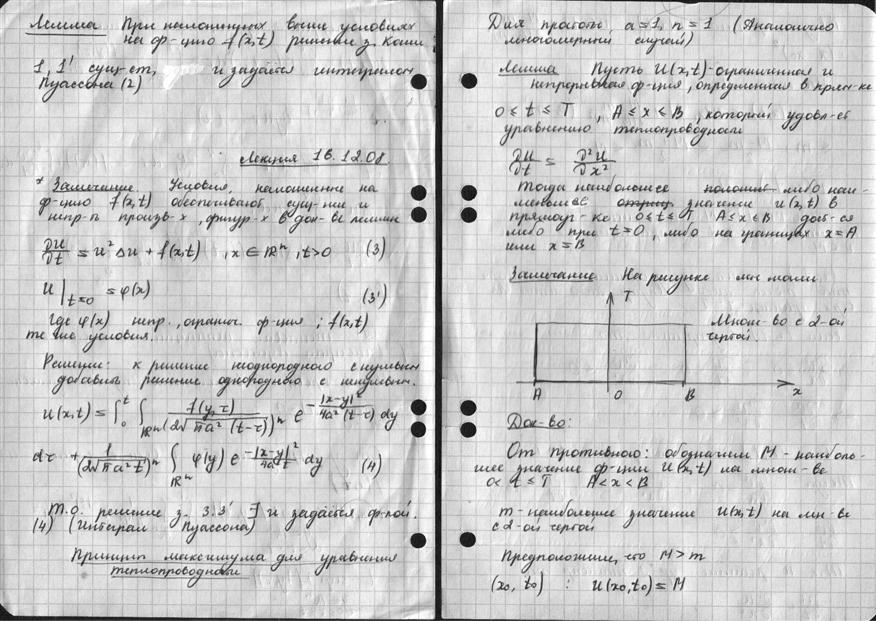 Лемма При наложенных выше условиях
на ф-цию f(x,t) решение з. Коши
1, 1' сущ-ет, и задаётся интегралом
Пуассона (2)
Лекция 16.12.08.
* Замечание. Условия, наложенные на
ф-цию f(x,t) обеспечивают сущ-ние и
непр-ть произв-х, фигур-х в док-ве леммы
∂u/∂t = a² Δu + f(x,t) , x ∈ ℝⁿ , t>0 (3)
u|t=0 = φ(x) (3')
Где φ(x) непр., огранич. ф-ция ; f(x,t)
те же условия.
Решение: к решение неоднородного с нулевым
добавить решение однородного с ненулевым.
u(x,t) = ∫₀ᵗ ∫ℝⁿ f(y,τ)/(2√πa²(t-τ))ⁿ e^(-|x-y|²/4a²(t-τ)) dy
dτ + 1/(2√πa²t)ⁿ ∫ℝⁿ φ(y) e^(-|x-y|²/4a²t) dy (4)
Т.о. решение з. 3.3' ∃ и задаётся ф-лой.
(4) (Интеграл Пуассона)
Принцип максимума для уравнения
теплопроводности
Для простоты a=1, n=1 (Аналогично
многомерный случай)
Лемма Пусть U(x,t)-ограниченная и
непрерывная ф-ция, определенная в прям-ке
0 ≤ t ≤ T , A ≤ x ≤ B , который удовл-ет
уравнению теплопроводности
∂U/∂t = ∂²U/∂x²
Тогда наибольшее полошит либо наи-
меньшее значение u(x,t) в
прямоуг-ке 0≤t≤T A≤x≤B дост-ся
либо при t=0, либо на границах x=A
или x=B
Замечание На рисунке
T
Множ-во с 2-ой
чертой.
A 0 B x
Док-во:
От противного: обозначим M - наиболь-
шее значение ф-ции U(x,t) на множ-ве
0< t ≤ T A<x<B
m-наибольшее значение U(x,t) на мн-ве
с 2-ой чертой
Предположим, что M>m
(x₀, t₀) : U(x₀,t₀) = M